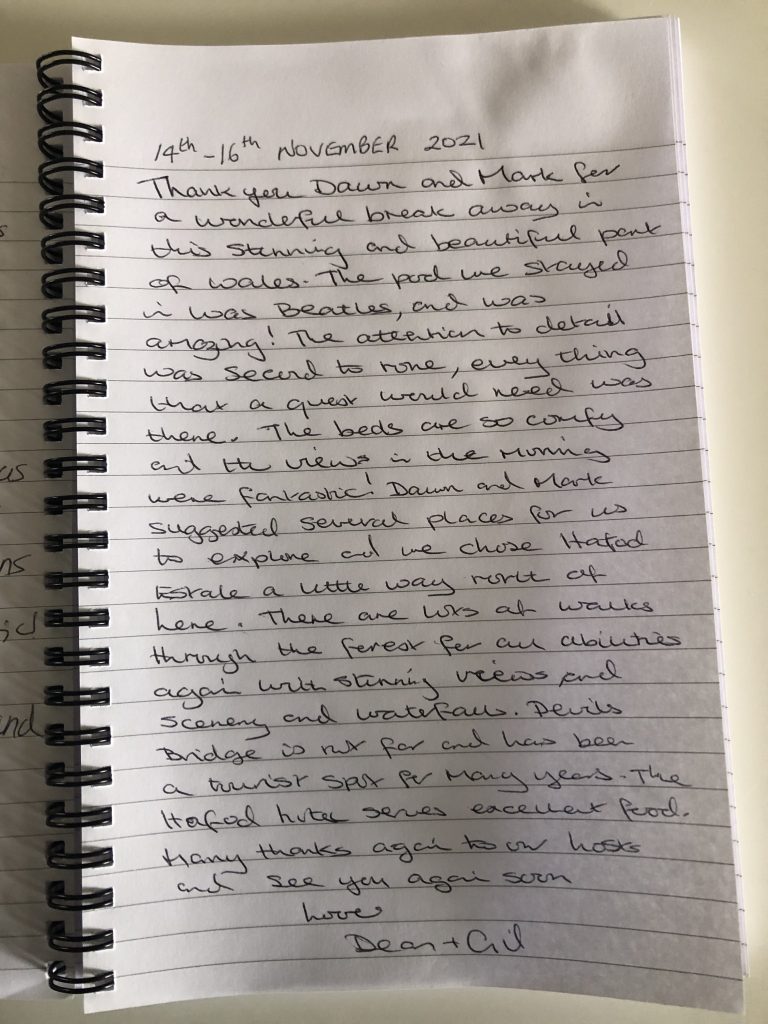 14th - 16th NOVEMBER 2021
Thank you Dawn and Mark for
a wondeful break away in
this stunning and beautiful part
of Wales. The pod we stayed
in was Beatles, and was
amazing! The attention to detail
was second to none, every thing
that a guest would need was
there. The beds are so comfy
and the views in the morning
were fantastic! Dawn and Mark
suggested several places for us
to explore and we chose Hafod
Estate a little way north of
here. There are lots of walks
through the forest for all abilities
again with stunning views and
scenery and waterfalls. Devils
Bridge is not far and has been
a tourist spot for many years. The
Hafod hotel serves excellent food.
Many thanks again to our hosts
and see you again soon
Love
Dean + Gil
us
ns
nd